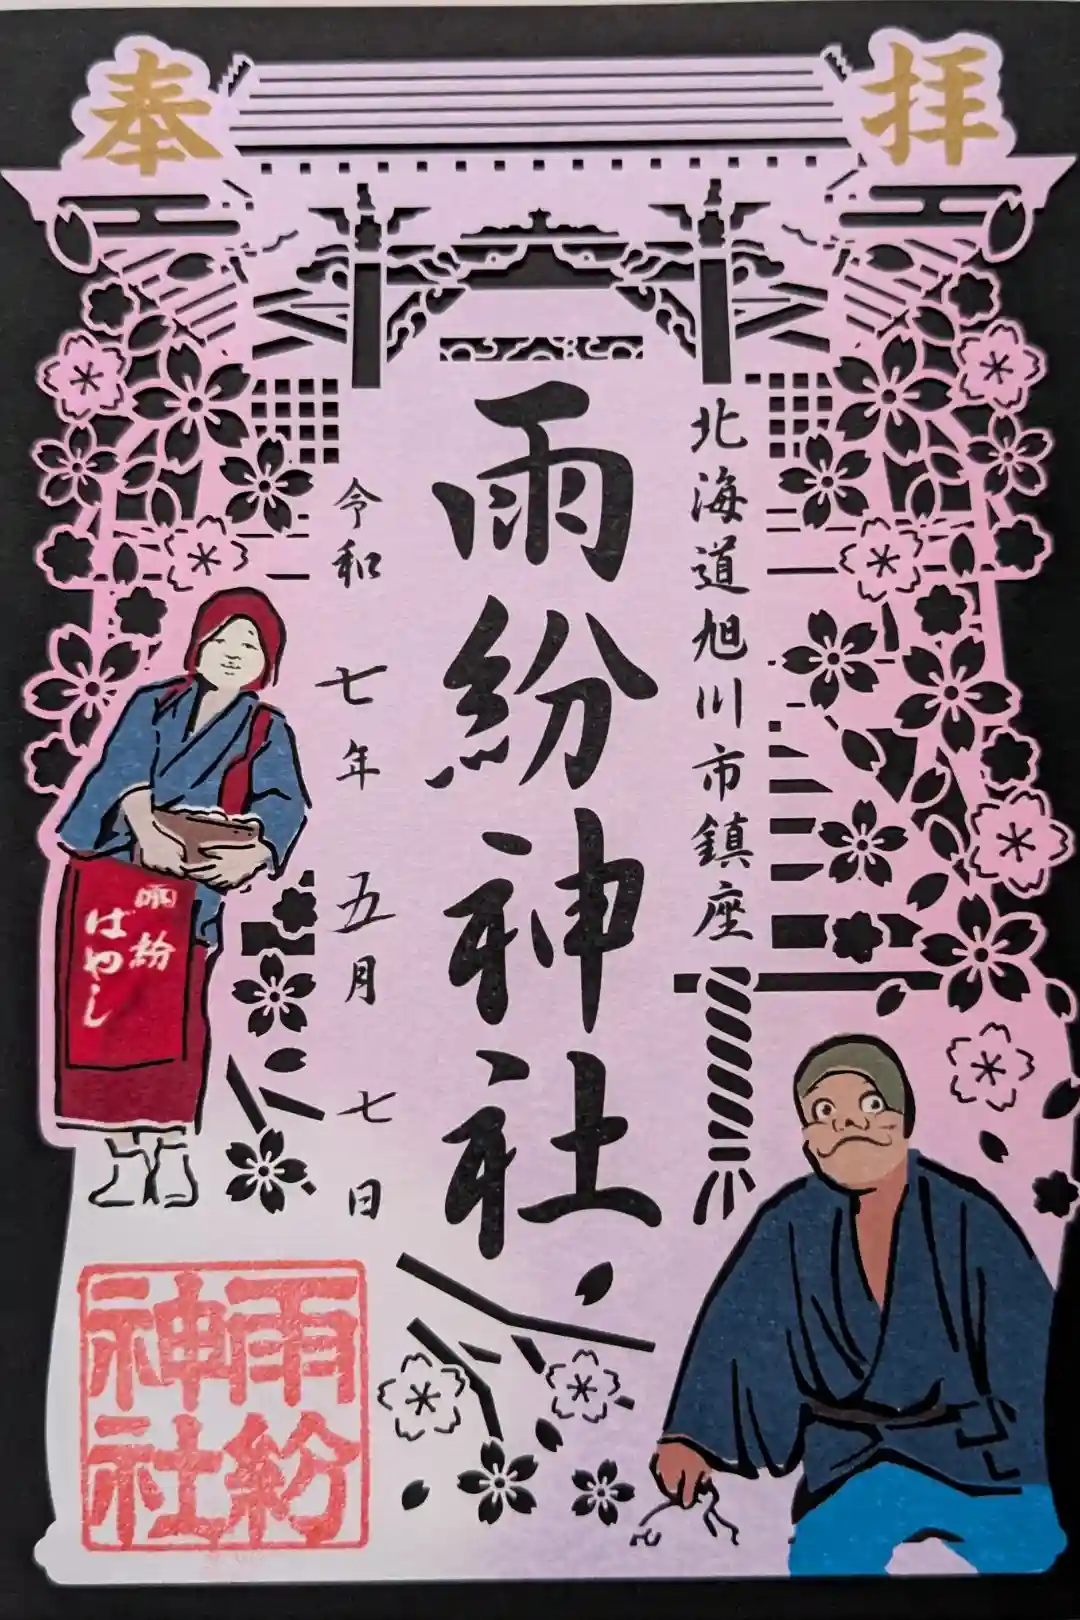 奉拝
北海道旭川市鎮座
雨紛神社
令和七年五月七日
雨紛
ばやし
雨紛
神社